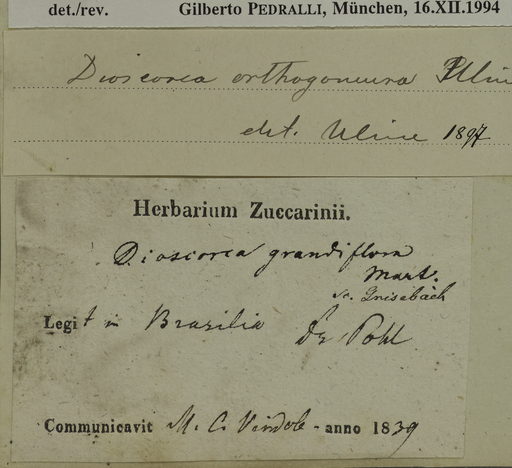 det./rev. Gilberto PEDRALLI, München, 16.XII.1994
Dioscorea orthogoneura Uline
det. Uline 1897
Herbarium Zuccarinii.
Dioscorea grandiflora
Mart.
Grisebach
Legit in Brasilia Dr Pohl
Communicavit M. C. Vindob. anno 1839